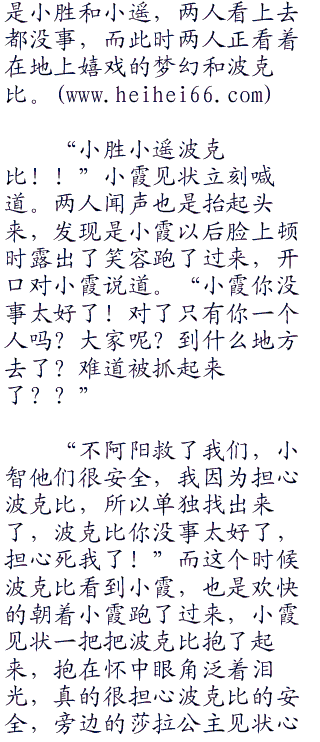 是小胜和小遥，两人看上去
都没事，而此时两人正看着
在地上嬉戏的梦幻和波克
比。(www.heihei66.com)
“小胜小遥波克
比！！”小霞见状立刻喊
道。两人闻声也是抬起头
来，发现是小霞以后脸上顿
时露出了笑容跑了过来，开
口对小霞说道。“小霞你没
事太好了！对了只有你一个
人吗？大家呢？到什么地方
去了？难道被抓起来
了？？”
“不阿阳救了我们，小
智他们很安全，我因为担心
波克比，所以单独找出来
了，波克比你没事太好了，
担心死我了！”而这个时候
波克比看到小霞，也是欢快
的朝着小霞跑了过来，小霞
见状一把把波克比抱了起
来，抱在怀中眼角泛着泪
光，真的很担心波克比的安
全，旁边的莎拉公主见状心